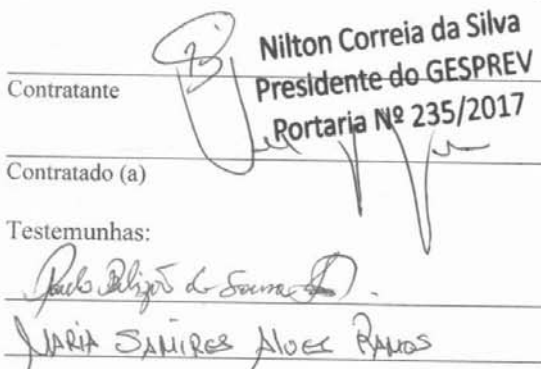 Nilton Correia da Silva
Presidente do GESPREV
Portaria Nº 235/2017
Contratante
Contratado (a)
Testemunhas:
de Sousa
MARIA SAMIRES ALVES RAMOS